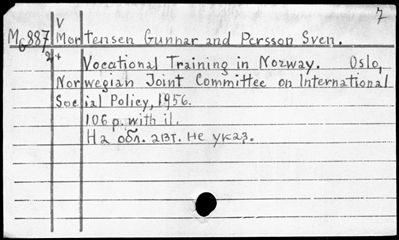 7
V
M6887 Mortensen Gunnar and Persson Sven.
2+ Vocational Training in Norway. Oslo,
Norwegian Joint Committee on International
Social Policy, 1956.
106 p. with il.
На обл. авт. не указ.